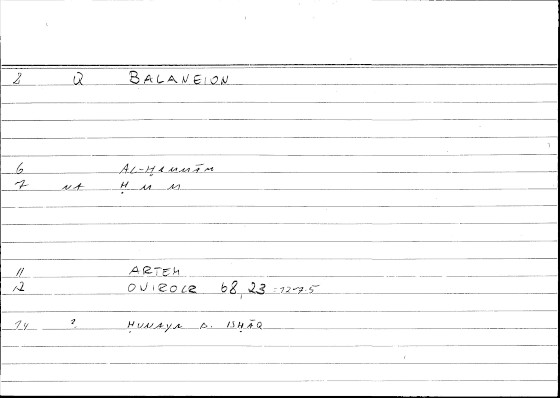 2 Q BALANEION
6 AL-ḤAMMĀM
7 NA Ḥ M M
11 ARTEM
12 ONIROCR 68,23
14 ḤUNAYN B. ISḤĀQ